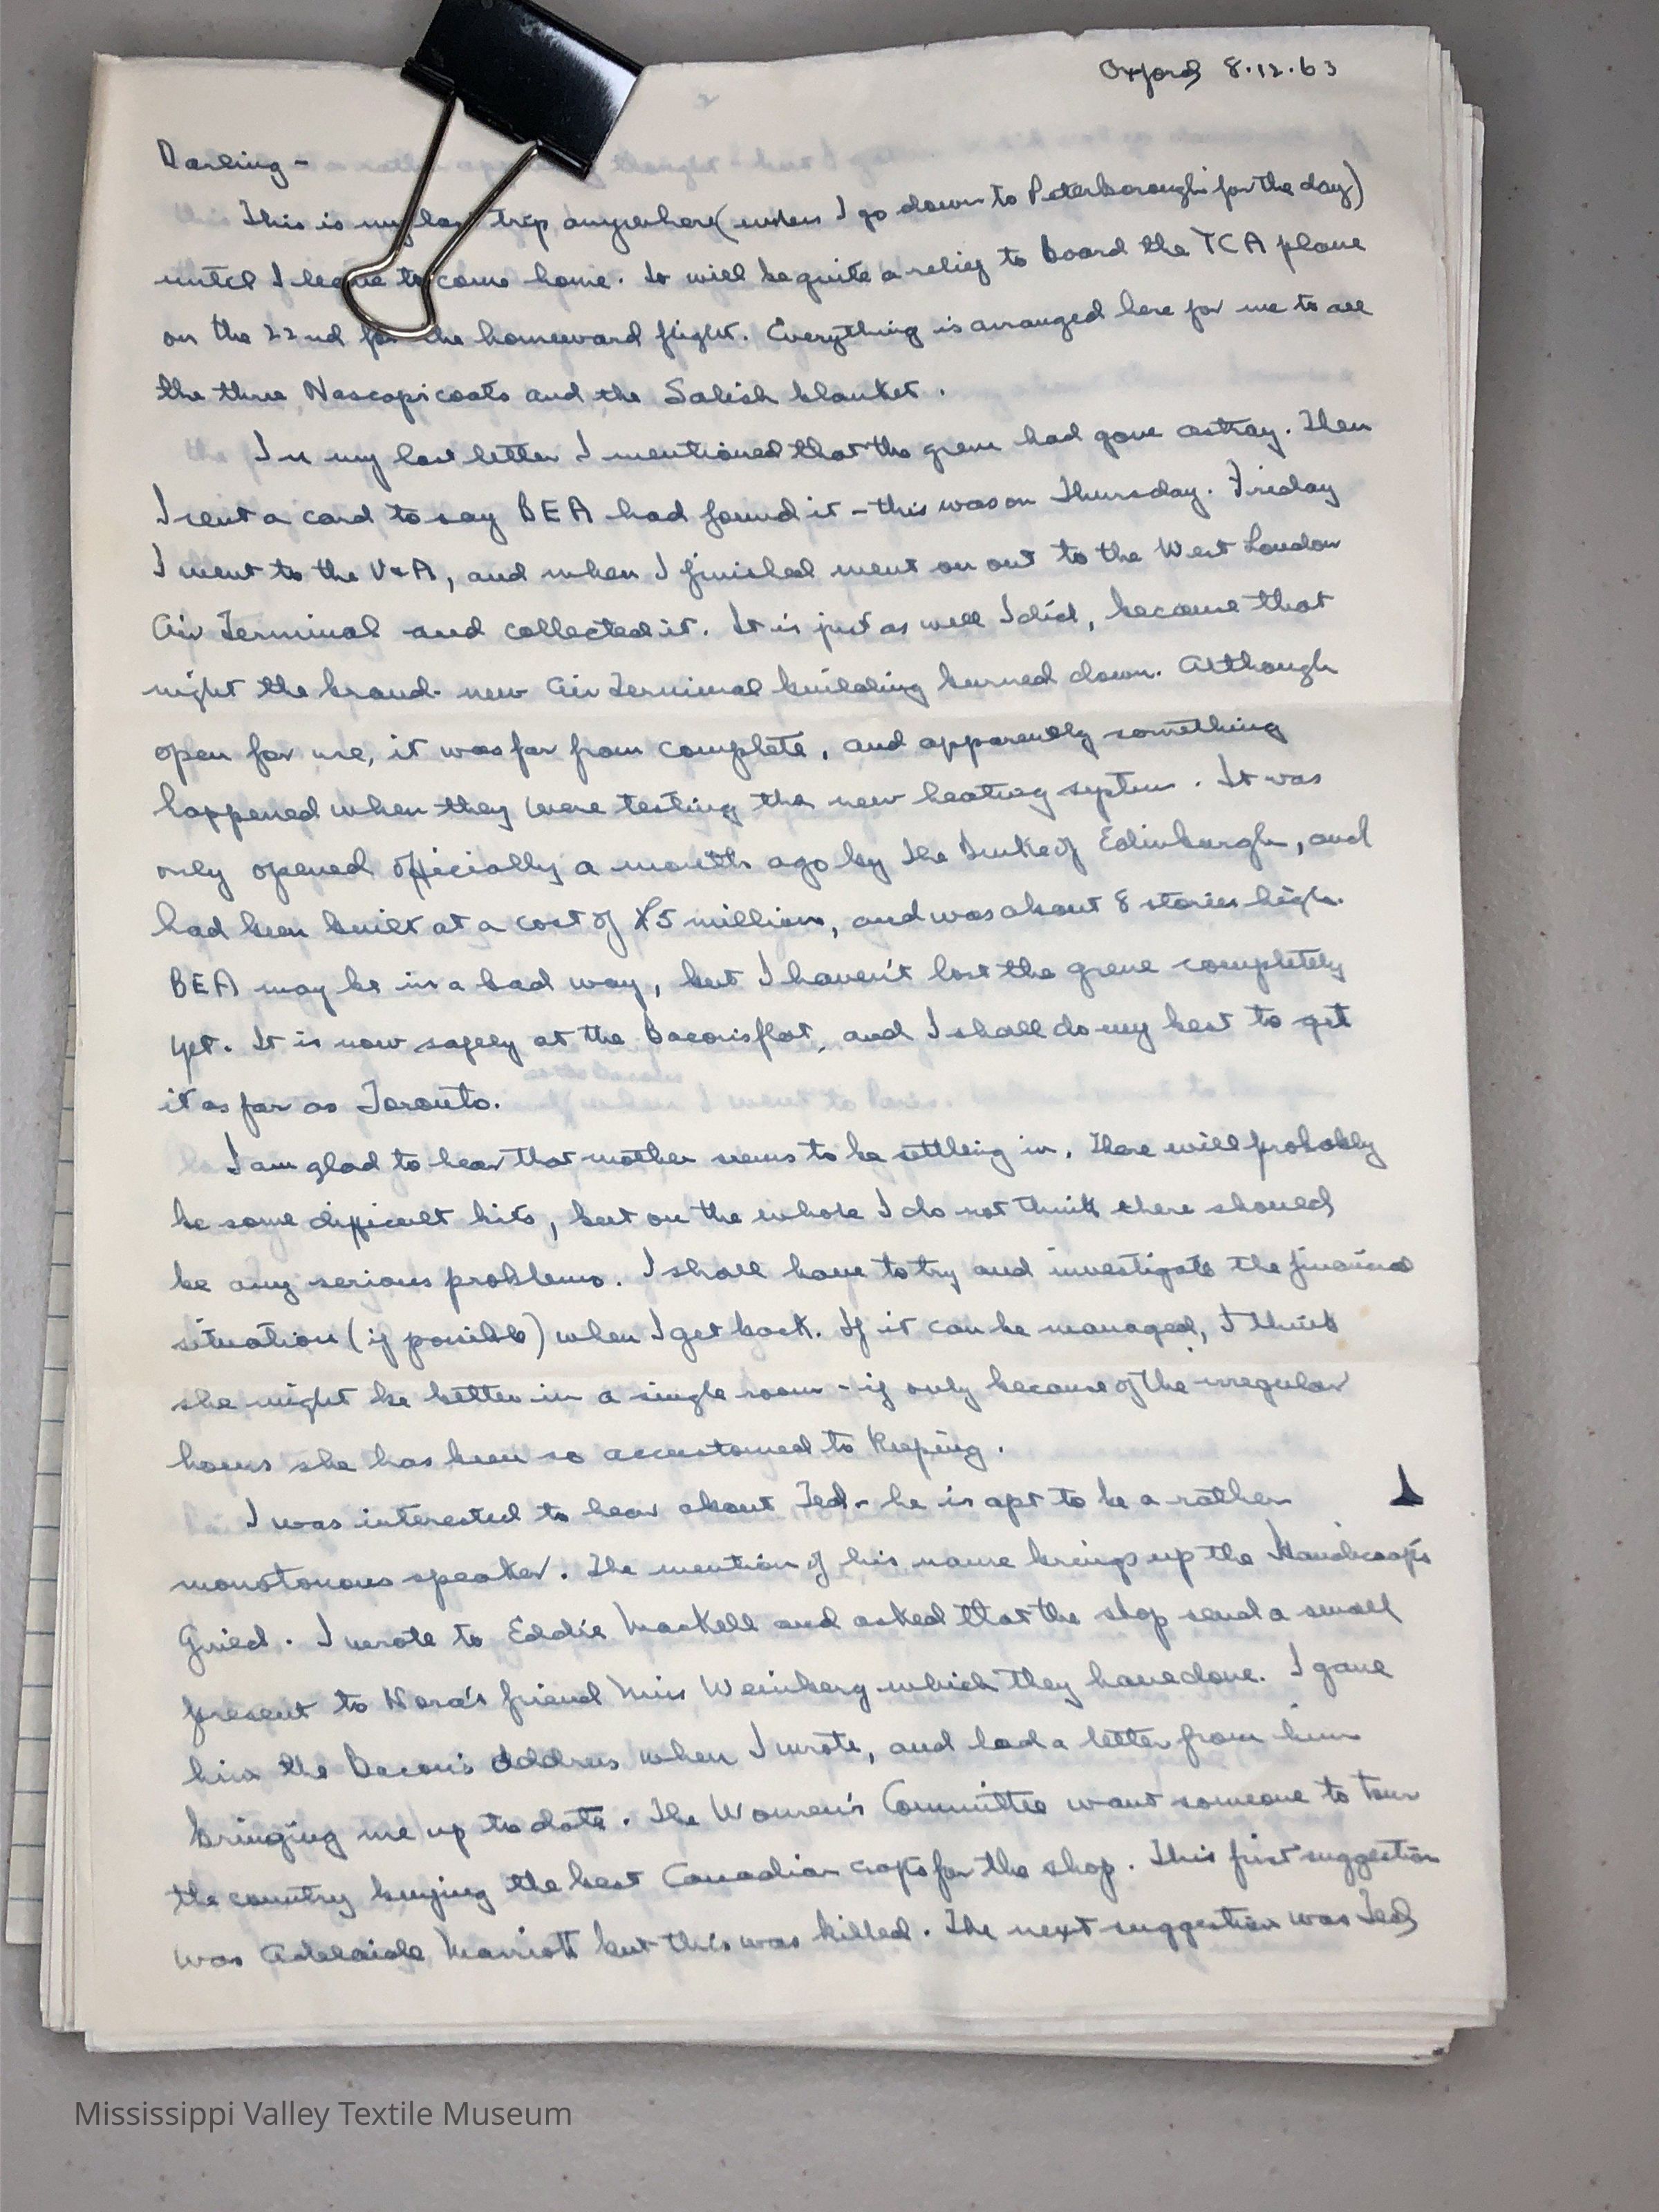 Oxford 8.12.63
Darling -
This is my last trip anywhere (unless I go down to Peterborough for the day)
until I leave to come home. It will be quite a relief to board the TCA plane
on the 22nd for the homeward flight. Everything is arranged here for me to see
the three Nascopi coats and the Salish blanket.
In my last letter I mentioned that the grene had gone astray. Then
I sent a card to say BEA had found it - this was on Thursday. Friday
I went to the V&A, and when I finished went on out to the West London
Air Terminal and collected it. It is just as well I did, because that
night the brand-new Air Terminal building burned down. Although
open for use, it was far from complete, and apparently something
happened when they were testing the new heating system. It was
only opened officially a month ago by the Duke of Edinburgh, and
had been built at a cost of £5 million, and was about 8 stories high.
BEA may be in a bad way, but I haven't lost the grene completely
yet. It is now safely at the Bacons flat, and I shall do my best to get
it as far as Toronto.
I am glad to hear that mother seems to be settling in. There will probably
be some difficult bits, but on the whole I do not think there should
be any serious problems. I shall have to try and investigate the financial
situation (if possible) when I get back. If it can be managed, I think
she might be better in a single room - if only because of the irregular
hours she has been so accustomed to keeping.
I was interested to hear about Ted - he is apt to be a rather
monotonous speaker. The mention of his name brings up the Handicrafts
Guild. I wrote to Eddie Mackell and asked that the shop send a small
present to Nora's friend Miss Weinberg which they have done. I gave
him the Bacon's address when I wrote, and had a letter from him
bringing me up to date. The Women's Committee want someone to tour
the country buying the best Canadian crafts for the shop. This first suggestion
was Adelaide Marriott but this was killed. The next suggestion was Ted
Mississippi Valley Textile Museum